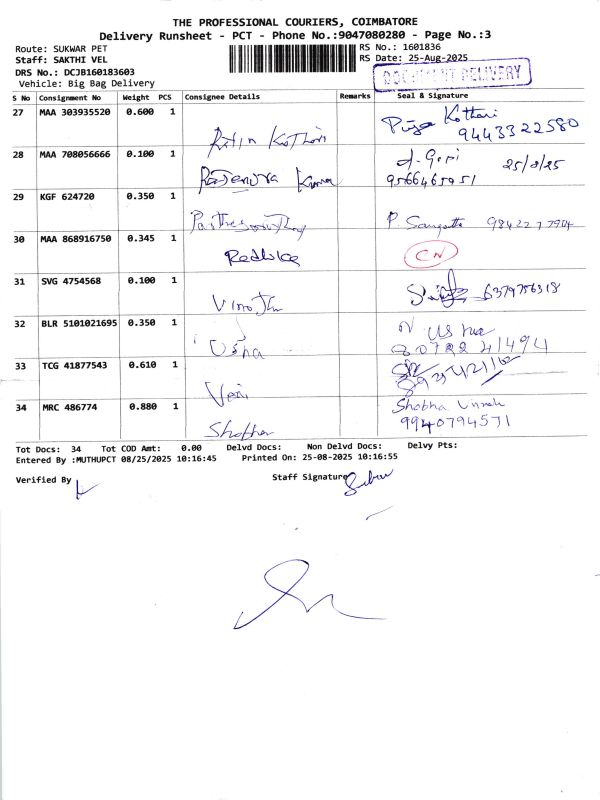 THE PROFESSIONAL COURIERS, COIMBATORE
Delivery Runsheet - PCT - Phone No.:9047080280 - Page No.:3
Route: SUKWAR PET RS No.: 1601836
Staff: SAKTHI VEL RS Date: 25-Aug-2025
DRS No.: DCJB160183603 DOCUMENT DELIVERY
Vehicle: Big Bag Delivery
S No Consignment No Weight PCS Consignee Details Remarks Seal & Signature
27 MAA 303935520 0.600 1 Kothari Kothari
9443322580
28 MAA 708056666 0.100 1 Rajendra Kumar 25/8/25
9566465951
29 KGF 624720 0.350 1 P. Sangeetha 9842277904
30 MAA 868916750 0.345 1 Radhika CN
31 SVG 4754568 0.100 1 Vinoth 6379756318
32 BLR 5101021695 0.350 1 Usha N Usha
8072241494
33 TCG 41877543 0.610 1 Veni
34 MRC 486774 0.880 1 Shobha Shobha
9940794571
Tot Docs: 34 Tot COD Amt: 0.00 Delvd Docs: Non Delvd Docs: Delvy Pts:
Entered By :MUTHUPCT 08/25/2025 10:16:45 Printed On: 25-08-2025 10:16:55
Verified By Staff Signature